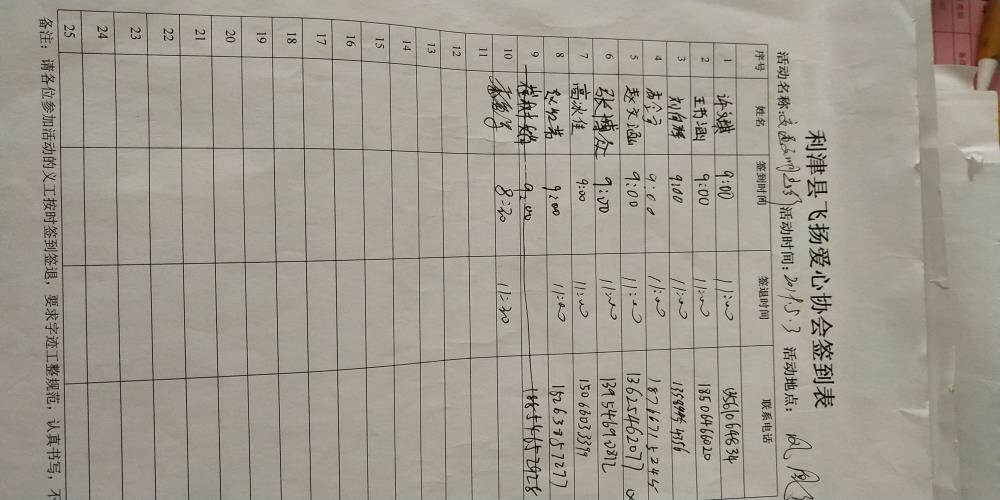 利津县飞扬爱心协会签到表
活动名称: 活动时间: 2019.5.3 活动地点:
序号 姓名 签到时间 签退时间 联系电话
1 许文祺 9:00 11:00 1561064834
2 王书涵 9:00 11:00 18506466020
3 9:00 11:00
4 9:00 11:00 18766715245
5 赵文涵 9:00 11:00 13625462077
6 张博 9:00 11:00 13954690812
7 高冰佳 9:00 11:00 15066033399
8 9:00 11:00 15263857277
9 9:00 18854652928
10 8:30 11:30
11
12
13
14
15
16
17
18
19
20
21
22
23
24
25
备注：请各位参加活动的义工按时签到签退，要求字迹工整规范，认真书写，不